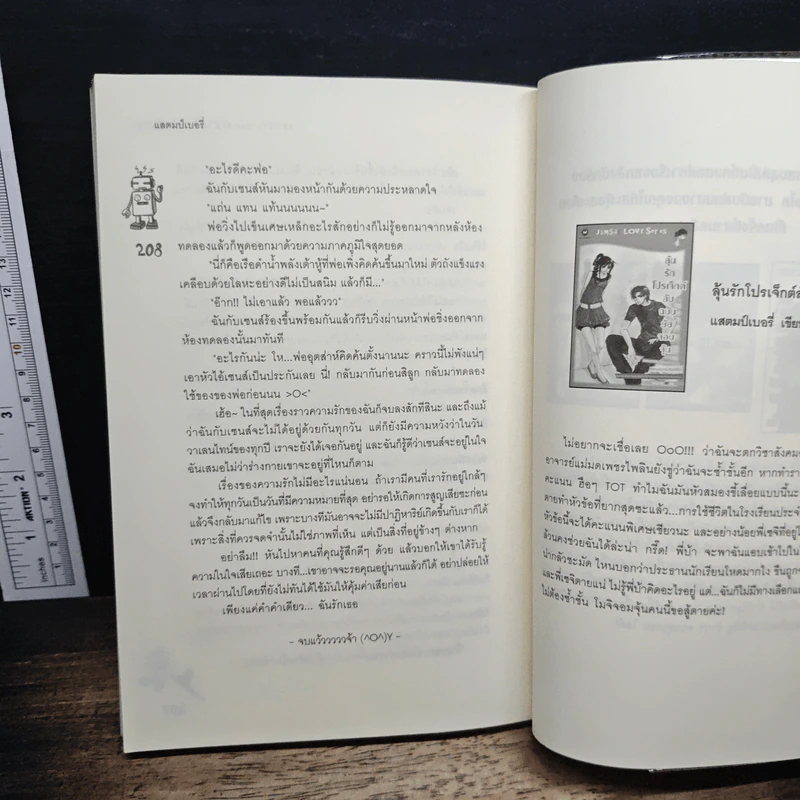 แสตมป์เบอรี่
"อะไรดีคะพ่อ"
ฉันกับเซนส์หันมามองหน้ากันด้วยความประหลาดใจ
"แถ่น แทน แท้นนนนนน~"
พ่อวิ่งไปเข็นเศษเหล็กอะไรสักอย่างก็ไม่รู้ออกมาจากหลังห้อง
ทดลองแล้วก็พูดออกมาด้วยความภาคภูมิใจสุดยอด
"นี่ก็คือเรือดำน้ำพลังเต้าหู้ที่พ่อเพิ่งคิดค้นขึ้นมาใหม่ ตัวถังแข็งแรง
เคลือบด้วยโลหะอย่างดีไม่เป็นสนิม แล้วก็มี..."
"อ๊าก!! ไม่เอาแล้ว พอแล้ววว"
ฉันกับเซนส์ร้องขึ้นพร้อมกันแล้วก็รีบวิ่งผ่านหน้าพ่อซิ่งออกจาก
ห้องทดลองนั้นมาทันที
"อะไรกันน่ะ โห...พ่ออุตส่าห์คิดค้นตั้งนานนะ คราวนี้ไม่พังแน่ๆ
เอาหัวไอ้เซนส์เป็นประกันเลย นี่! กลับมากันก่อนสิลูก กลับมาทดลอง
ใช้ของของพ่อก่อนนน >O<"
เฮ้อ~ ในที่สุดเรื่องราวความรักของฉันก็จบลงสักทีสินะ และถึงแม้
ว่าฉันกับเซนส์จะไม่ได้อยู่ด้วยกันทุกวัน แต่ก็ยังมีความหวังว่าในวัน
วาเลนไทน์ของทุกปี เราจะยังได้เจอกันอยู่ และฉันก็รู้ดีว่าเซนส์จะอยู่ในใจ
ฉันเสมอไม่ว่าร่างกายเขาจะอยู่ที่ไหนก็ตาม
เรื่องของความรักไม่มีอะไรแน่นอน ถ้าเรามีคนที่เรารักอยู่ใกล้ๆ
จงทำให้ทุกวันเป็นวันที่มีความหมายที่สุด อย่ารอให้เกิดการสูญเสียซะก่อน
แล้วจึงกลับมาแก้ไข เพราะบางทีมันอาจจะไม่มีปาฏิหาริย์เกิดขึ้นกับเราก็ได้
เพราะสิ่งที่ควรจดจำนั้นไม่ใช่ภาพที่เห็น แต่เป็นสิ่งที่อยู่ข้างๆ ต่างหาก
อย่าลืม!! หันไปหาคนที่คุณรู้สึกดีๆ ด้วย แล้วบอกให้เขาได้รับรู้
ความในใจเสียเถอะ บางที...เขาอาจจะรอคุณอยู่นานแล้วก็ได้ อย่าปล่อยให้
เวลาผ่านไปโดยที่ยังไม่ทันได้ใช้มันให้คุ้มค่าเสียก่อน
เพียงแค่คำคำเดียว... ฉันรักเธอ
- จบแว้ววววววจ้า (^O^)Y -
208
JIMSI LOVE SERIES
ลุ้น
รัก
โปรเจ็กต์
ลุ้นรักโปรเจ็กต์
แสตมป์เบอรี่ เขีย
ไม่อยากจะเชื่อเลย OoO!!! ว่าฉันจะตกวิชาสังคม
อาจารย์แม่มดเพชรไพลินยังขู่ว่าฉันจะซ้ำชั้นอีก หากทำรา
คะแนน ฮือๆ TOT ทำไมฉันมันหัวสมองขี้เลื่อยแบบนี้นะ
ตายทำหัวข้อที่ยากสุดซะแล้ว...การใช้ชีวิตในโรงเรียนประจำ
หัวข้อนี้จะได้คะแนนพิเศษเชียวนะ และอย่างน้อยพี่เซจิที่อยู่
ล้วนคงช่วยฉันได้ล่ะน่า กรี๊ด! พี่บ้า จะพาฉันแอบเข้าไปใน
น่ากลัวชะมัด ไหนบอกว่าประธานนักเรียนโหดมากไง ขืนถูก
และพี่เซจิตายแน่ ไม่รู้พี่บ้าคิดอะไรอยู่ แต่...ฉันก็ไม่มีทางเลือก
ไม่ต้องซ้ำชั้น โมจิจอมจุ้นคนนี้ขอสู้ตายค่ะ!
inches